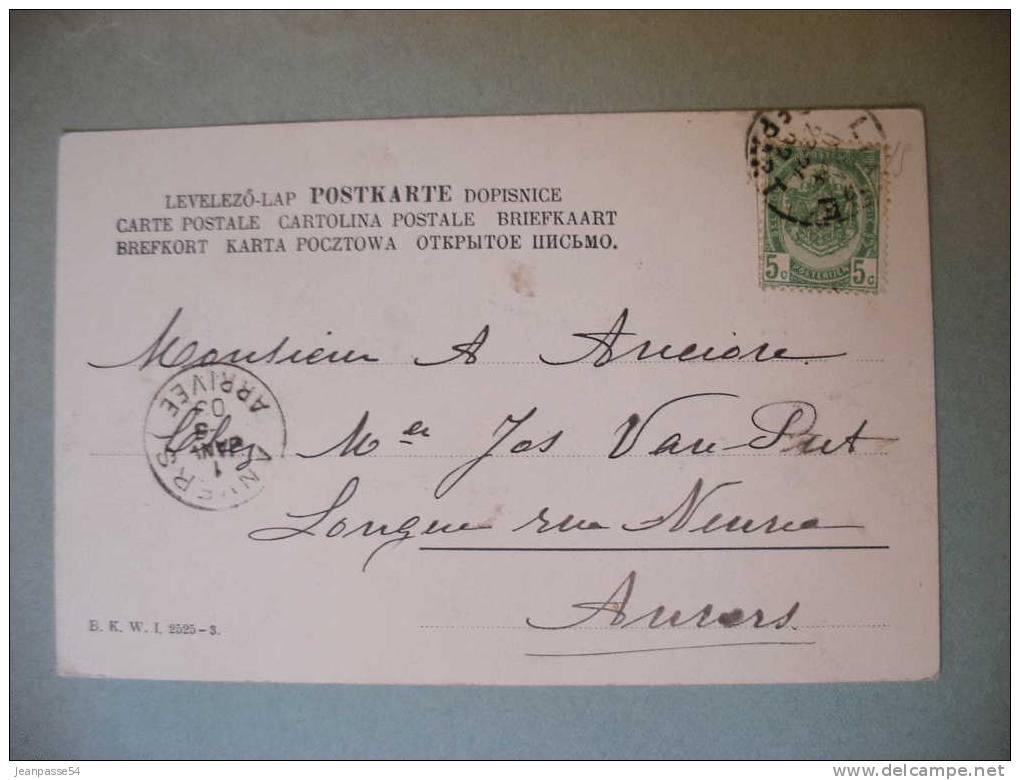 LEVELEZŐ-LAP POSTKARTE DOPISNICE
CARTE POSTALE CARTOLINA POSTALE BRIEFKAART
BREFKORT KARTA POCZTOWA ОТКРЫТОЕ ПИСЬМО.
5c POSTERIJEN 5c
Monsieur A Anciore
Chez Mer Jos Van Put
Longue rue Neuve
Anvers
ANVERS
1
JANV
03
ARRIVÉE
B. K. W. I. 2525-3.
jeanpasse54
www.delcampe.net